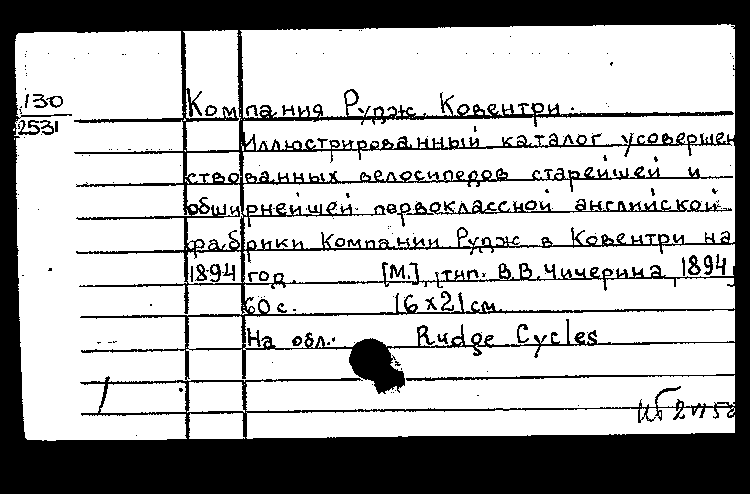 130
2531
Компания Рудж. Ковентри.
Иллюстрированный каталог усовершен
ствованных велосипедов старейшей и
обширнейшей первоклассной английской
фабрики Компании Рудж в Ковентри на
1894 год. [М.], тип. В.В. Чичерина, 1894,
60 с. 16 х 21 см.
На обл.: Rudge Cycles